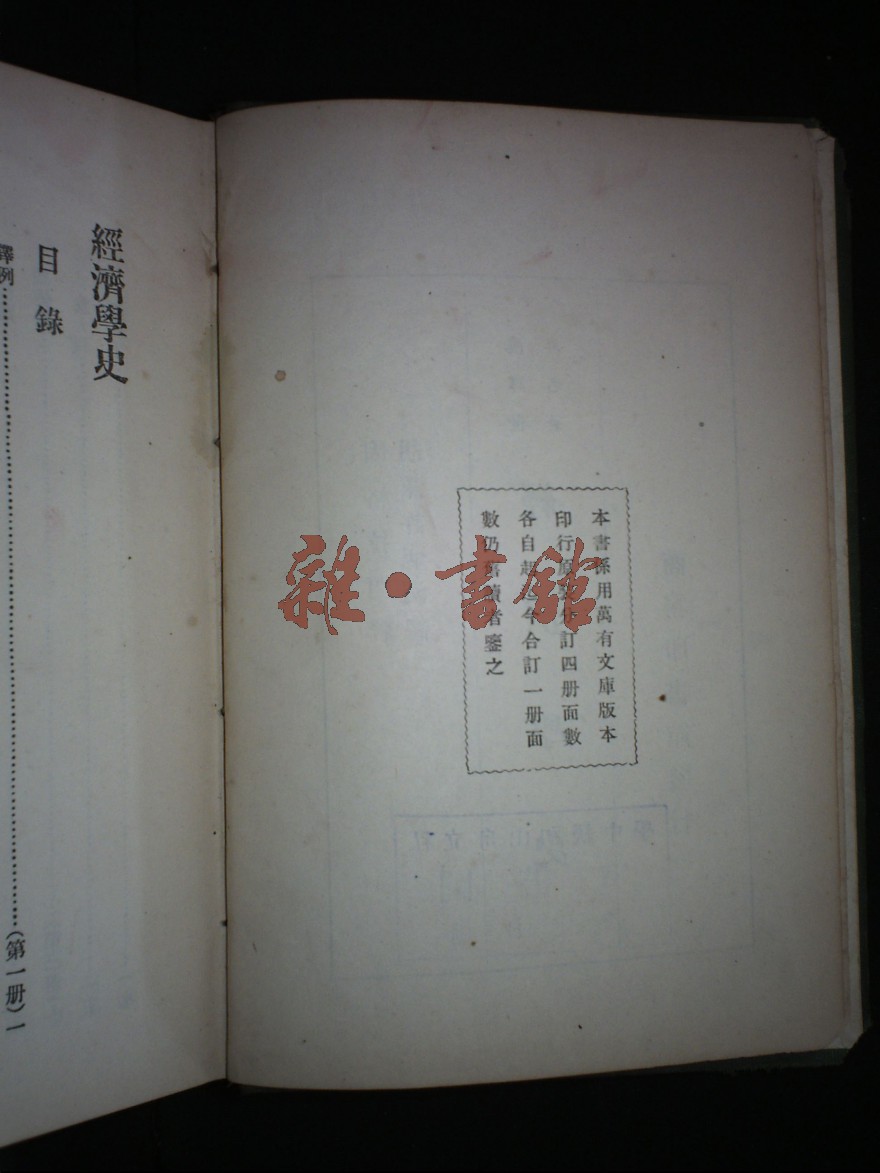 本書係用萬有文庫版本
印行原裝分訂四册面數
各自起訖今合訂一册面
數仍舊讀者鑒之
經濟學史
目錄
譯例……………(第一册)一
雜·書館